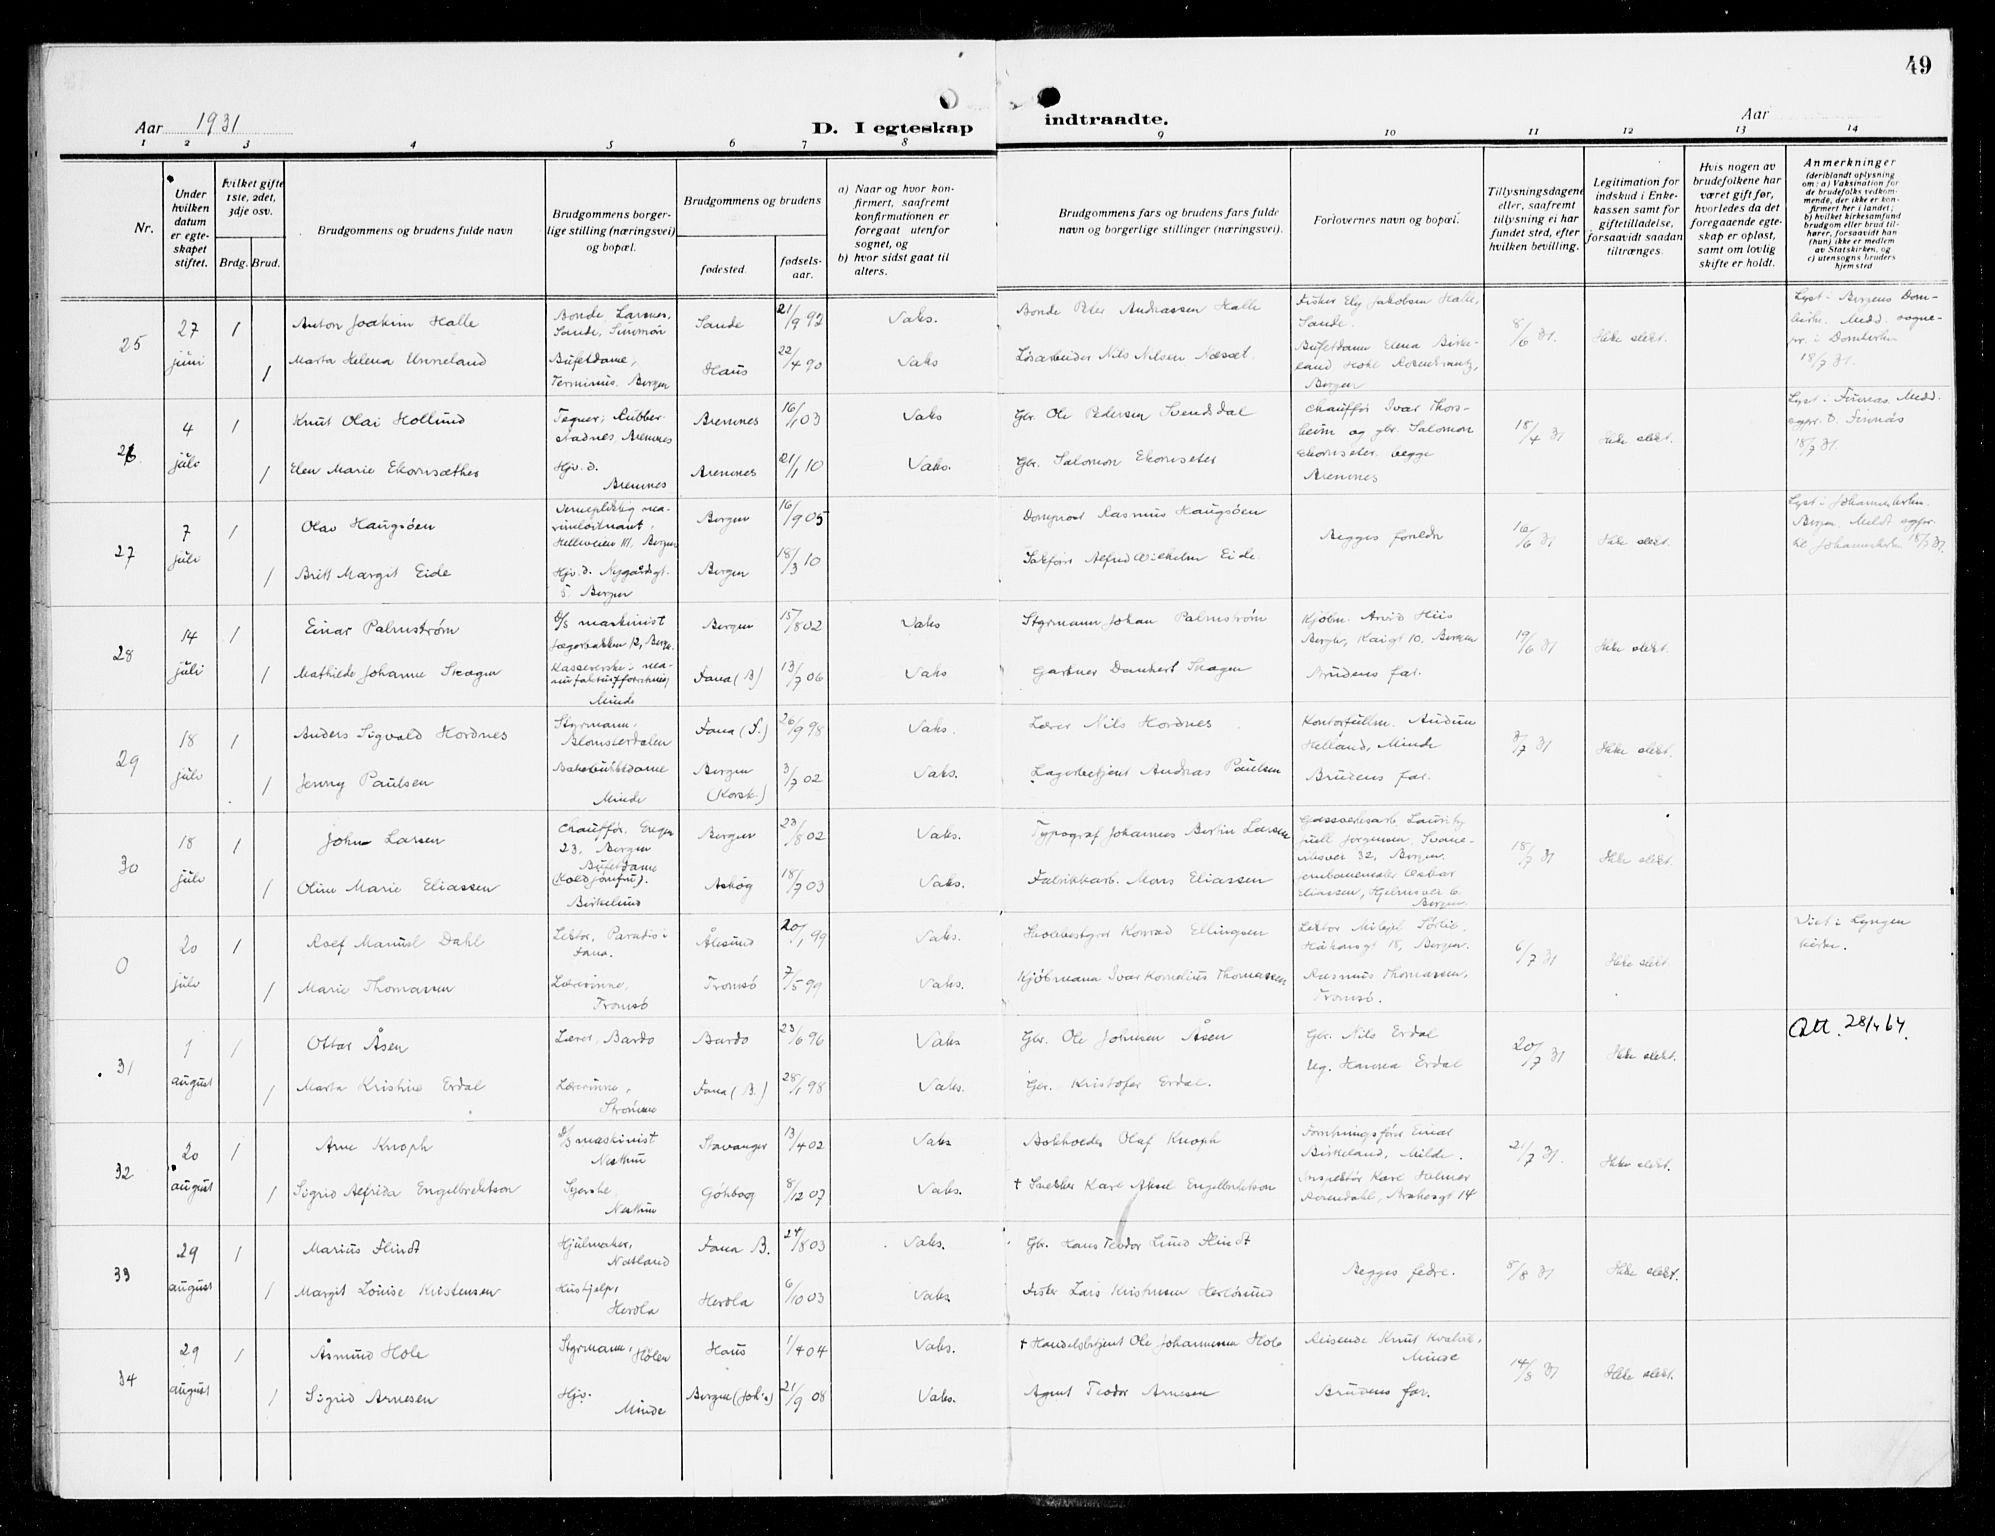 49
Aar 1931
D. I egteskap indtraadte.
Aar
1 2 3 4 5 6 7 8 9 10 11 12 13 14
Nr.
Under hvilken datum er egteskapet stiftet.
hvilket gifte 1ste, 2det, 3dje osv.
Brdg. Brud.
Brudgommens og brudens fulde navn
Brudgommens borgerlige stilling (næringsvei) og bopæl.
Brudgommens og brudens
fødested.
fødselsaar.
a) Naar og hvor konfirmert, saafremt konfirmationen er foregaat utenfor sognet, og
b) hvor sidst gaat til alters.
Brudgommens fars og brudens fars fulde navn og borgerlige stillinger (næringsvei).
Forlovernes navn og bopæl.
Tillysningsdagene eller, saafremt tillysning ei har fundet sted, efter hvilken bevilling.
Legitimation for indskud i Enkekassen samt for giftetilladelse, forsaavidt saadan tiltrænges.
Hvis nogen av brudefolkene har været gift før, hvorledes da det foregaaende egteskap er opløst, samt om lovlig skifte er holdt.
Anmerkninger (deriblandt oplysning om: a) Vaksination for de brudefolks vedkommende, der ikke er konfirmert her i landet; b) hvilket kirkesamfund brudgom eller brud tilhører, forsaavidt han (hun) ikke er medlem av Statskirken, og c) utensogns bruders hjemsted
25 27 juni 1 Anton Joakim Halle Bonde, Larsnes, Sande, Sunmør Sande 21/9 92 Vaks. Bonde Peter Andreassen Halle Fisker Ely Jakobsen Halle, Sande. 8/6 31. Ikke slekt. Lyst i Bergens Domkirke. Medd. sognepr. i Domkirken 18/7 31.
1 Marta Helena Unneland Bufetdame, Terminus, Bergen Haus 22/4 90 Vaks Løsarbeider Nils Nilsen Næset. Bufetdame Elena Birkeland Hotel Rosenkrantz, Bergen
26 4 juli 1 Knut Olai Hollund Bremnes 16/1 03 Vaks Gbr. Ole Pedersen Svendsdal Chauffør Ivar Thorsheim og gbr. Salomon Ekornseter, begge Bremnes 18/4 31 Ikke slekt. Lyst i Finnås. Medd. sogpr. t. Finnås 18/7 31.
1 Elen Marie Ekornsæther Hjv. d. Bremnes Bremnes 21/1 10 Vaks. Gbr. Salomon Ekornseter
27 7 juli 1 Olav Haugsöen Vernepliktig marineløitnant, Helleveien 111, Bergen Bergen 16/9 05 Domprost Rasmus Haugsöen Begges foreldre 16/6 31 Ikke slekt. Lyst i Johanneskirken Bergen. Meldt sogpr. til Johanneskirken 18/7 31.
1 Britt Margit Eide Hjv. d. Nygårdsgt. 5, Bergen Bergen 18/3 10 Sakfører Alfred Wilhelm Eide
28 14 juli 1 Einar Palmstrøm D/S maskinist Jægerbakken 12, Berg. Bergen 15/8 02 Vaks Styrmann Johan Palmstrøm Kjøbm. Arvid Hiis Bergh, Kaigt 10, Bergen 19/6 31 Ikke slekt.
1 Mathilde Johanne Skagen Kassererske i manufakturforretning Minde Fana (B) 13/7 06 Vaks Gartner Dankert Skagen Brudens far.
29 18 juli 1 Anders Sigvald Hordnes Styrmann, Blomsterdalen Fana (F.) 26/9 98 Vaks. Lærer Nils Hordnes Kontorfullm. Audun Helland, Minde 3/7 31 Ikke slekt.
1 Jenny Paulsen Minde Bergen (Korsk.) 3/7 02 Vaks. Lagerbetjent Andreas Paulsen Brudens far.
30 18 juli 1 John Larsen Chauffør, 23, Bergen Bergen 23/8 02 Vaks. Typograf Johannes Bertin Larsen Gassverksarb. Lauritz Juell Jørgensen, 32, Bergen. 18/7 31 Ikke slekt.
1 Oline Marie Eliassen Bufetdame (Koldjomfru). Birkelund Askøy 18/7 03 Vaks. Fabrikkarb. Mons Eliassen Jernbanemester Oskar Eliassen, 6 Bergen
0 20 juli 1 Rolf Manuel Dahl Lektor, Paradis i Fana. Ålesund 20/1 99 Vaks. Skolebestyrer Konrad Ellingsen Lektor Mikjel Sørlie, Håkonsgt 18, Bergen. 6/7 31 Ikke slekt Viet i Lyngen kirke.
1 Marie Thomassen Lærerinne, Tromsö Tromsö 7/5 99 Vaks. Kjøbmann Ivar Kornelius Thomassen Rasmus Thomassen, Tromsø.
31 1 august 1 Ottar Åsen Lærer, Bardo Bardo 23/6 96 Vaks Gbr. Ole Johnsen Åsen Gbr. Nils Erdal 20/7 31 Ikke slekt. Att. 28/4 64.
1 Marta Kristine Erdal Lærerinne, Strömme Fana (B.) 28/1 98 Vaks. Gbr. Kristofer Erdal. Ug. Hanna Erdal
32 20 august 1 Arne Knoph D/S maskinist Nesttun Stavanger 13/4 02 Vaks Bokholder Olaf Knoph Forretningsfører Einar Birkeland, Milde. 21/7 31. Ikke slekt.
1 Sigrid Alfrida Engelbrektson Syerske, Nesttun Göteborg 8/12 07 Vaks. † Snekker Karl Aksel Engelbrektson Inspektør Kåre Helmer Rosendahl, 14
33 29 august 1 Marius Flindt Hjulmaker, Natland Fana B. 24/8 03 Vaks. Gbr. Hans Teodor Lund Flindt Begges fedre. 8/8 31 Ikke slekt.
1 Margit Louise Kristensen Hushjelp, Herdla Herdla 6/10 03 Vaks. Fisker Lars Kristensen
34 29 august 1 Åsmund Hole Styrmann, Hølen Haus 1/4 04 Vaks. † Handelsbetjent Ole Johannessen Hole Reisende Knut Kvalvik, Minde 14/8 31 Ikke slekt.
1 Sigrid Arnesen Hjv. Minde Bergen (Joh's) 21/9 08 Vaks. Agent Teodor Arnesen Brudens far.